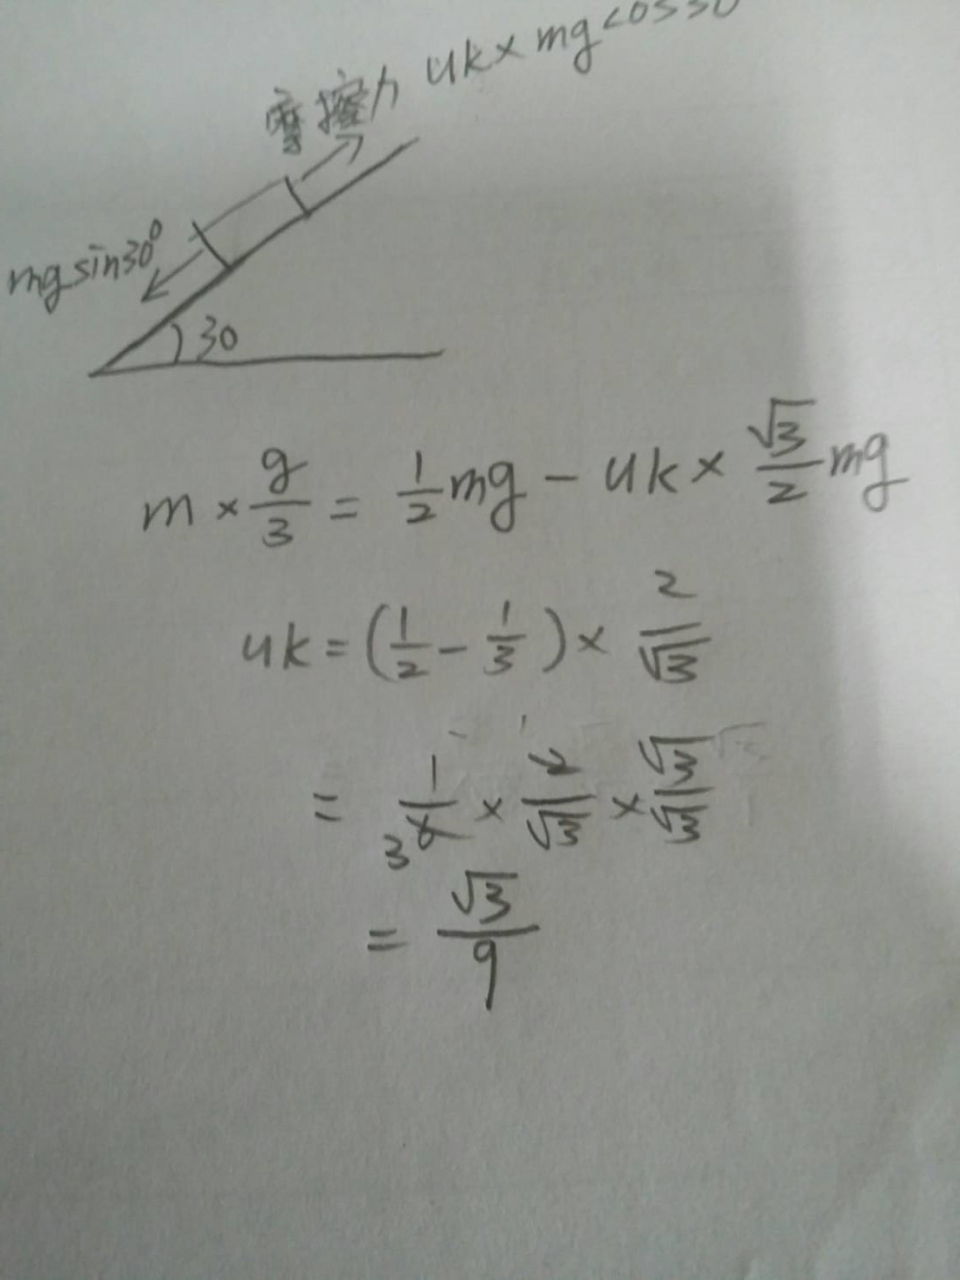 摩擦力 uk×mgcos30
mgsin30°
30
m×g/3=1/2mg-uk×√3/2mg
uk=(1/2-1/3)×2/√3
=1/6×2/√3×√3/√3
1
3
=√3/9